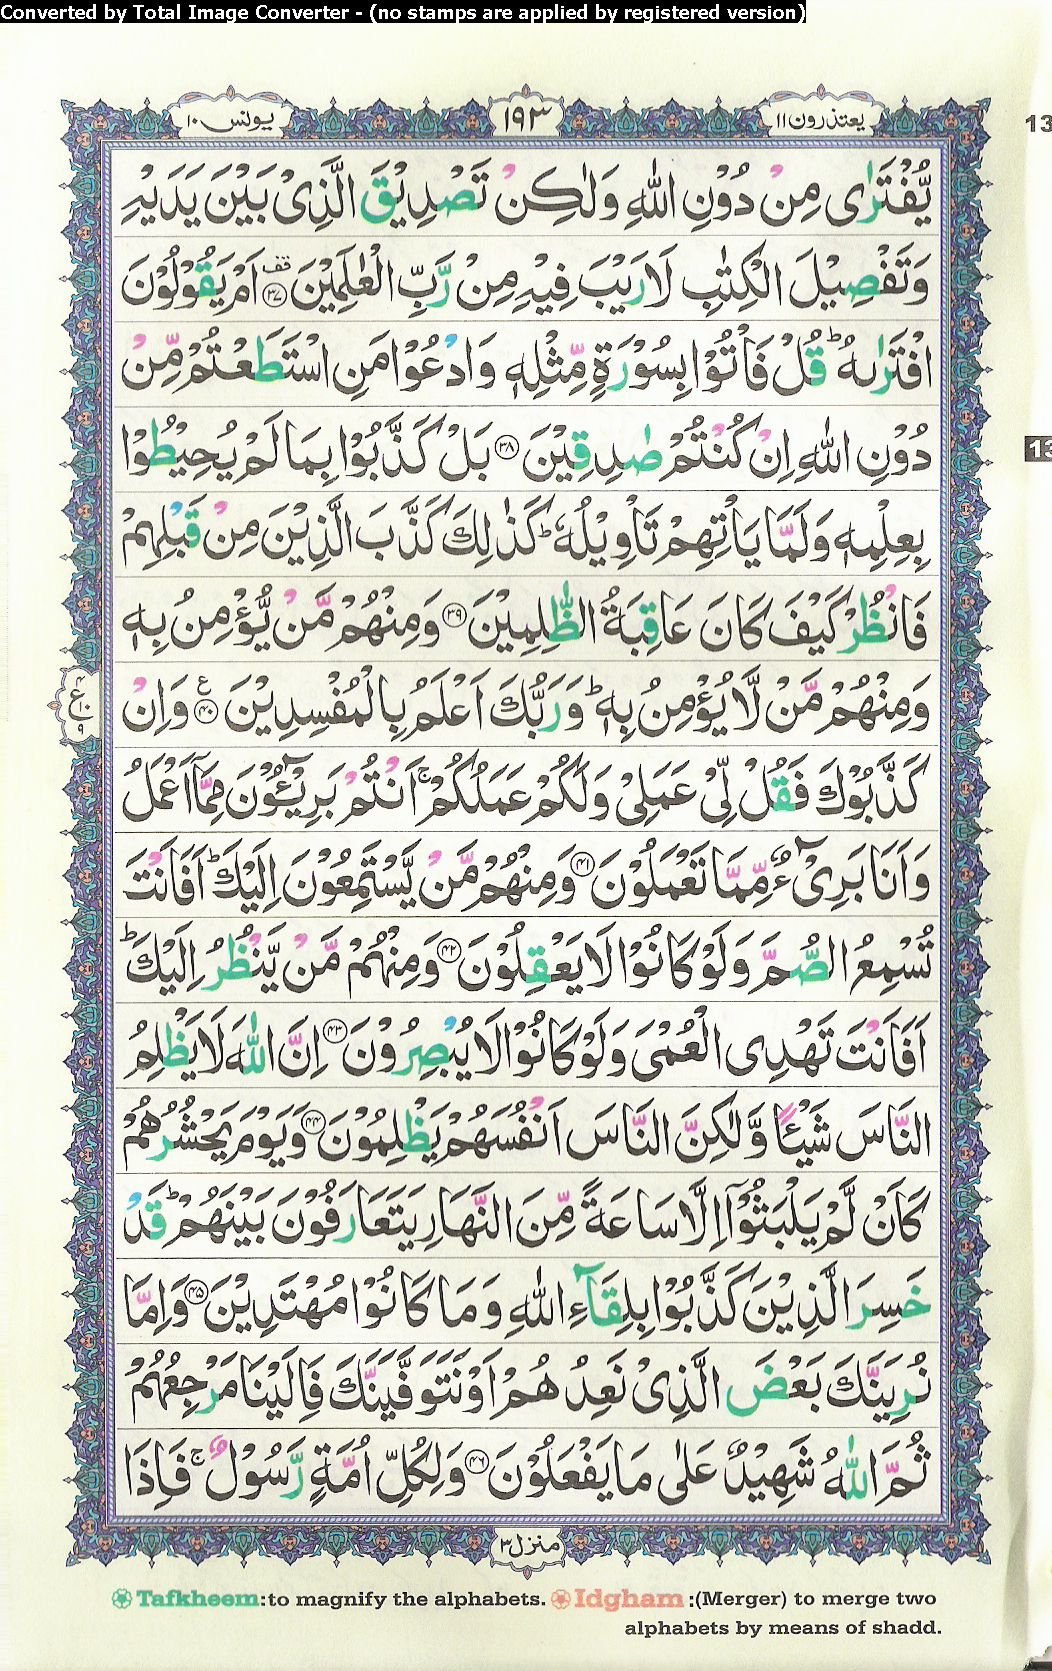 Converted by Total Image Converter - (no stamps are applied by registered version)
یعتذرون ۱۱ ۱۹۳ یونس ۱۰
یُّفْتَرٰی مِنْ دُوْنِ اللّٰهِ وَلٰكِنْ تَصْدِیْقَ الَّذِیْ بَیْنَ یَدَیْهِ
وَتَفْصِیْلَ الْكِتٰبِ لَا رَیْبَ فِیْهِ مِنْ رَّبِّ الْعٰلَمِیْنَ ﴿۳۷﴾ قف اَمْ یَقُوْلُوْنَ
افْتَرٰىهُ ؕ قُلْ فَاْتُوْا بِسُوْرَةٍ مِّثْلِهٖ وَادْعُوْا مَنِ اسْتَطَعْتُمْ مِّنْ
دُوْنِ اللّٰهِ اِنْ كُنْتُمْ صٰدِقِیْنَ ﴿۳۸﴾ بَلْ كَذَّبُوْا بِمَا لَمْ یُحِیْطُوْا
بِعِلْمِهٖ وَلَمَّا یَاْتِهِمْ تَاْوِیْلُهٗ ؕ كَذٰلِكَ كَذَّبَ الَّذِیْنَ مِنْ قَبْلِهِمْ
فَانْظُرْ كَیْفَ كَانَ عَاقِبَةُ الظّٰلِمِیْنَ ﴿۳۹﴾ وَمِنْهُمْ مَّنْ یُّؤْمِنُ بِهٖ
وَمِنْهُمْ مَّنْ لَّا یُؤْمِنُ بِهٖ ؕ وَرَبُّكَ اَعْلَمُ بِالْمُفْسِدِیْنَ ﴿۴۰﴾ ع وَاِنْ
كَذَّبُوْكَ فَقُلْ لِّیْ عَمَلِیْ وَلَكُمْ عَمَلُكُمْ ۚ اَنْتُمْ بَرِیْٓـُٔوْنَ مِمَّاۤ اَعْمَلُ
وَاَنَا بَرِیْٓءٌ مِّمَّا تَعْمَلُوْنَ ﴿۴۱﴾ وَمِنْهُمْ مَّنْ یَّسْتَمِعُوْنَ اِلَیْكَ ؕ اَفَاَنْتَ
تُسْمِعُ الصُّمَّ وَلَوْ كَانُوْا لَا یَعْقِلُوْنَ ﴿۴۲﴾ وَمِنْهُمْ مَّنْ یَّنْظُرُ اِلَیْكَ ؕ
اَفَاَنْتَ تَهْدِی الْعُمْیَ وَلَوْ كَانُوْا لَا یُبْصِرُوْنَ ﴿۴۳﴾ اِنَّ اللّٰهَ لَا یَظْلِمُ
النَّاسَ شَیْـًٔا وَّلٰكِنَّ النَّاسَ اَنْفُسَهُمْ یَظْلِمُوْنَ ﴿۴۴﴾ وَیَوْمَ یَحْشُرُهُمْ
كَاَنْ لَّمْ یَلْبَثُوْۤا اِلَّا سَاعَةً مِّنَ النَّهَارِ یَتَعَارَفُوْنَ بَیْنَهُمْ ؕ قَدْ
خَسِرَ الَّذِیْنَ كَذَّبُوْا بِلِقَآءِ اللّٰهِ وَمَا كَانُوْا مُهْتَدِیْنَ ﴿۴۵﴾ وَاِمَّا
نُرِیَنَّكَ بَعْضَ الَّذِیْ نَعِدُهُمْ اَوْ نَتَوَفَّیَنَّكَ فَاِلَیْنَا مَرْجِعُهُمْ
ثُمَّ اللّٰهُ شَهِیْدٌ عَلٰی مَا یَفْعَلُوْنَ ﴿۴۶﴾ وَلِكُلِّ اُمَّةٍ رَّسُوْلٌ ۚ فَاِذَا
منزل ۳
Tafkheem:to magnify the alphabets. Idgham :(Merger) to merge two
alphabets by means of shadd.